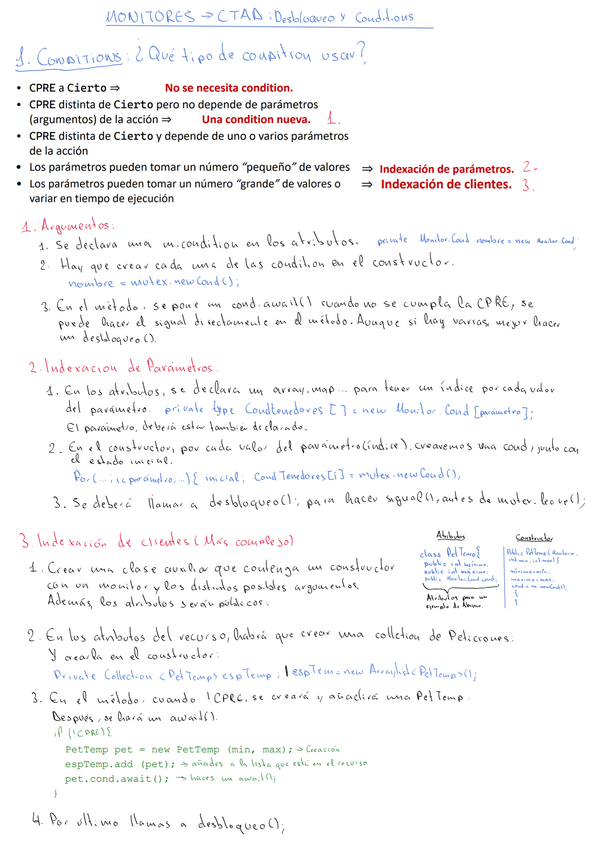 MONITORES → CTAD: Desbloqueo y Conditions
1. CONDITIONS: ¿Qué tipo de condition usar?
• CPRE a Cierto ⇒ No se necesita condition.
• CPRE distinta de Cierto pero no depende de parámetros
(argumentos) de la acción ⇒ Una condition nueva. 1.
• CPRE distinta de Cierto y depende de uno o varios parámetros
de la acción
• Los parámetros pueden tomar un número "pequeño" de valores ⇒ Indexación de parámetros. 2.
• Los parámetros pueden tomar un número "grande" de valores o ⇒ Indexación de clientes. 3.
variar en tiempo de ejecución
1. Argumentos:
1. Se declara una m.condition en los atributos. private Monitor.Cond nombre = new Monitor.Cond;
2. Hay que crear cada una de las condition en el constructor.
nombre = mutex.newCond();
3. En el método. se pone un cond.await() cuando no se cumpla la CPRE, se
puede hacer el signal directamente en el método. Aunque si hay varias, mejor hacer
un desbloqueo().
2. Indexacion de Parámetros.
1. En los atributos, se declara un array, map... para tener un índice por cada valor
del parametro. private type Condtenedores [] = new Monitor.Cond [parametro];
El parametro, deberá estar también declarado.
2. En el constructor, por cada valor del parámetro (índice), crearemos una cond, junto con
el estado inicial.
For(...; i< parametro;...){ inicial; CondTenedores[i] = mutex.newCond();
3. Se deberá llamar a desbloqueo(); para hacer signal(), antes de mutex.leave();
3. Indexación de clientes (Más complejo)
1. Crear una clase auxiliar que contenga un constructor
con un monitor y los distintos posibles argumentos.
Además, los atributos serán públicos.
Atributos
class PetTemp{
public int minimo;
public int maximo;
public Monitor.Cond cond;
Atributos para un
ejemplo de
Constructor
Public PetTemp(Monitor m,
int min, int max) {
minimo = min;
maximo = max;
cond = m.newCond();
}
}
2. En los atributos del recurso, habrá que crear una collction de Peticiones.
Y crearla en el constructor:
Private Collection <PetTemp> espTemp; | espTem = new Arraylist<PetTemp>();
3. En el método, cuando !CPRE, se creará y añadirá una PetTemp.
Después, se hará un await().
if (!CPRE){
PetTemp pet = new PetTemp (min, max); → Creación
espTemp.add (pet); → añades a la lista que está en el recurso
pet.cond.await(); → haces un await();
}
4. Por último llamas a desbloqueo();